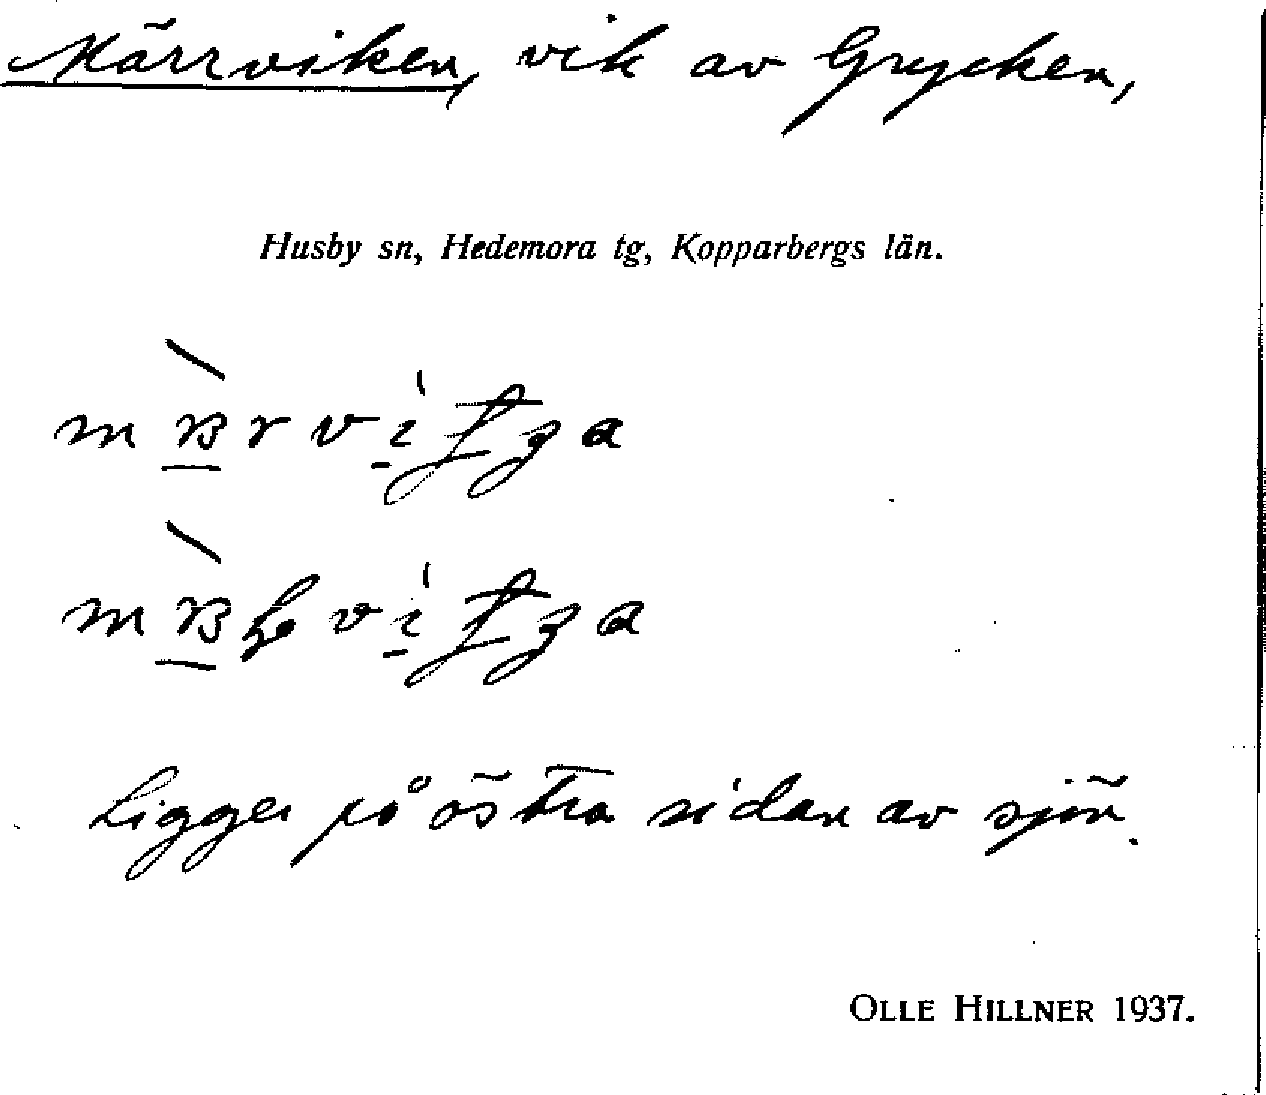 Märrviken, vik av Grycken,
Husby sn, Hedemora tg, Kopparbergs län.
Ligger på östra sidan av sjön.
OLLE HILLNER 1937.